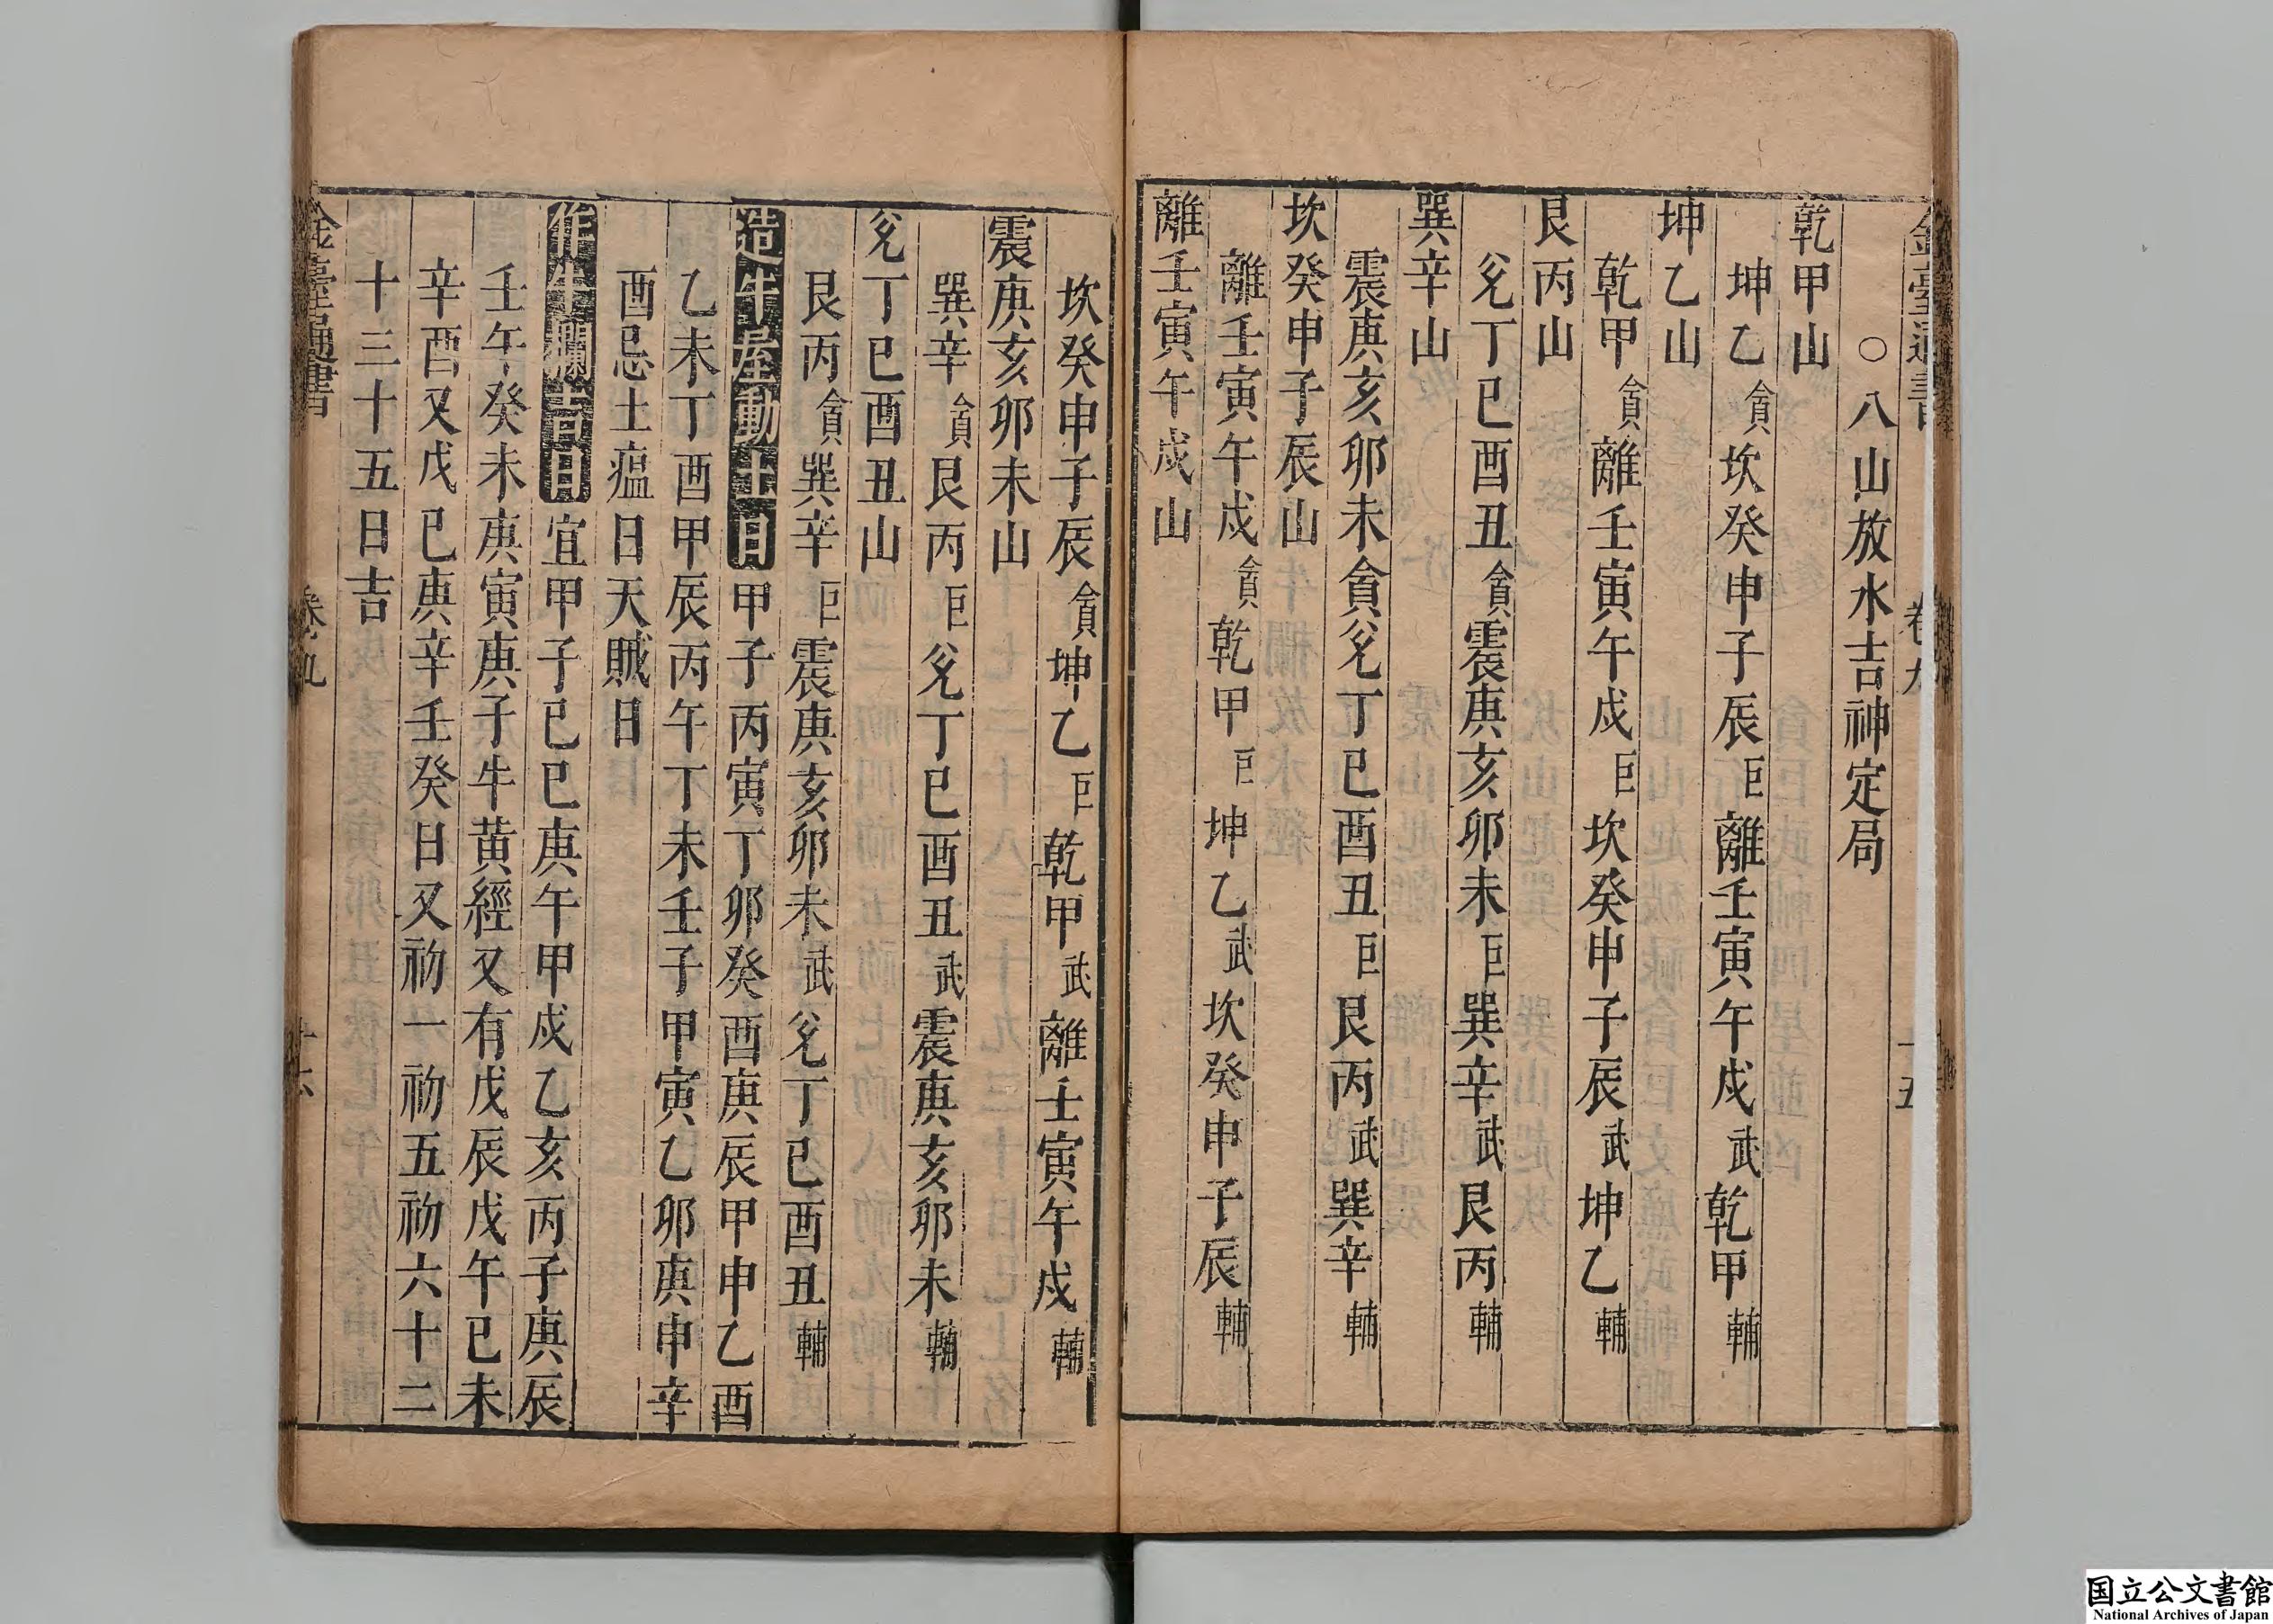 ○八山放水吉神定局
乾甲山
坤乙貪坎癸申子辰巨離壬寅午戌武乾甲輔
坤乙山
乾甲貪離壬寅午戌巨坎癸申子辰武坤乙輔
艮丙山
兊丁巳酉丑貪震庚亥卯未巨巽辛武艮丙輔
巽辛山
震庚亥卯未貪兊丁巳酉丑巨艮丙武巽辛輔
坎癸申子辰山
離壬寅午戌貪乾甲巨坤乙武坎癸申子辰輔
離壬寅午戌山
坎癸申子辰貪坤乙巨乾甲武離壬寅午戌輔
震庚亥卯未山
巽辛貪艮丙巨兊丁巳酉丑武震庚亥卯未輔
兊丁巳酉丑山
艮丙貪巽辛巨震庚亥卯未武兊丁巳酉丑輔
造牛屋動土日甲子丙寅丁卯癸酉庚辰甲申乙酉
乙未丁酉甲辰丙午丁未壬子甲寅乙卯庚申辛
酉忌土瘟日天賊日
作牛欄吉日宜甲子己巳庚午甲戌乙亥丙子庚辰
壬午癸未庚寅庚子牛黄經又有戊辰戊午己未
辛酉又戊己庚辛壬癸日又初一初五初六十二
十三十五日吉
金臺通書
卷九
十五
金臺通書
卷九
十六
国立公文書館
National Archives of Japan